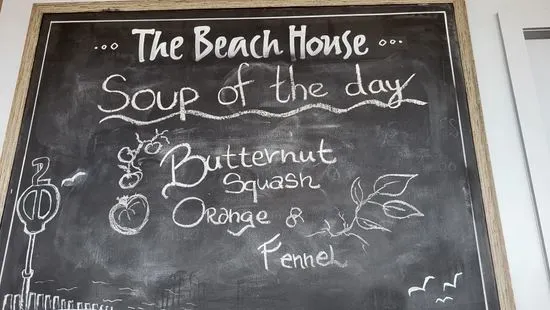 The Beach House
Soup of the day
Butternut
Squash
Orange &
Fennel
2